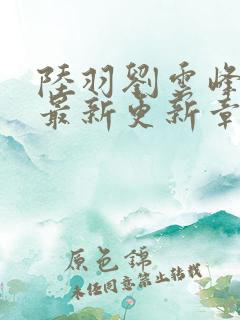 陸羽劉雲峰
最新更新章
原色錦
未经同意禁止转载